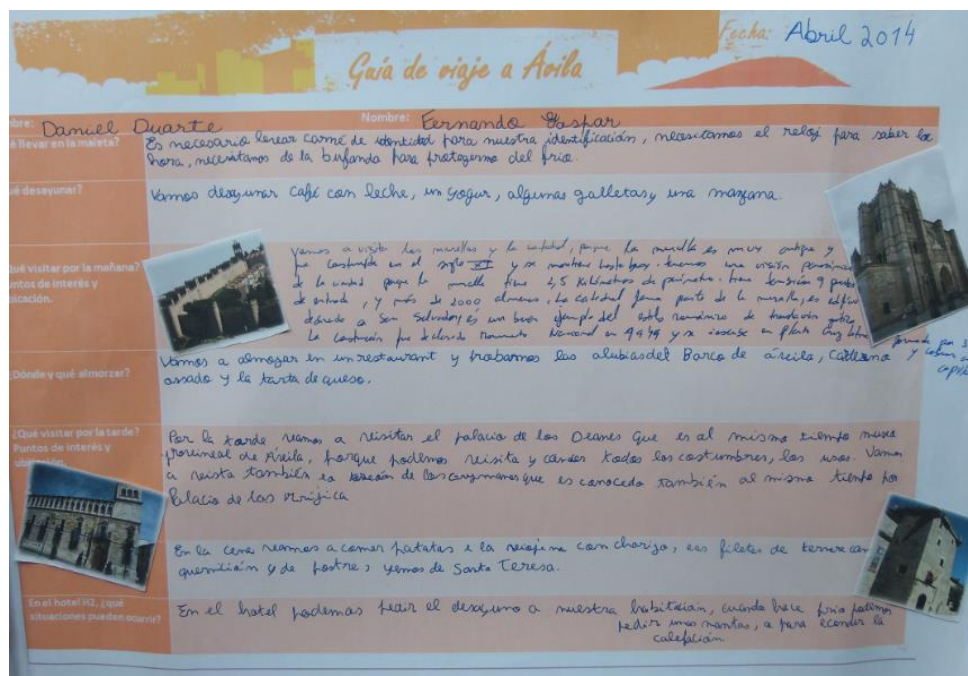 Fecha: Abril 2014
Guía de viaje a Ávila
bre: Daniel Duarte Nombre: Fernando Gaspar
é llevar en la maleta?
Es necesario llevar carné de identidad para nuestra identificación, necesitamos el reloj para saber la
hora, necesitamos de la bufanda para protegermo del frio.
ué desayunar?
Vamos desayunar café con leche, un yogur, algumas galletas y una manzana.
Qué visitar por la mañana?
ntos de interés y
bicación.
Vamos a visita las murallas y la catedral, porque la muralla es muy antigua y
fue construida en el siglo XI y se mantiene hasta hoy. tenemos una visión panorámica
de la ciudad porque la muralla tiene 2,5 kilómetros de perímetro. tiene 9
de entrada, y más de 2000 almenas. La catedral forma parte de la muralla, es edificio
a San Salvador, es un buen ejemplo del estilo románico de gótico
La fue declarada Monumento Nacional en y se en planta cruz latina
formada por 3
y
Vamos a almozar en un restaurant y probarmos las alubias del Barco de ávila,
¿Dónde y qué almorzar?
assado y la tarta de queso.
¿Qué visitar por la tarde?
Puntos de interés y
Por la tarde vamos a visitar el palacio de los Deanes que es al mismo tiempo museo
provincal de Ávila, porque podemos visita y todos los costumbres, los usos. Vamos
a también de los que es conocedo também al mismo tiempo por
Palacio de los
En la cena vamos a comer patatas con chorizo, filetes de
y de postre, yemas de Santa Teresa.
En el hotel H2, ¿qué
situaciones pueden ocurrir?
En el hotel podemos pedir el desayuno a nuestra habitacian, cuando hace frio podemos
pedir unas mantas, a para la
calefación